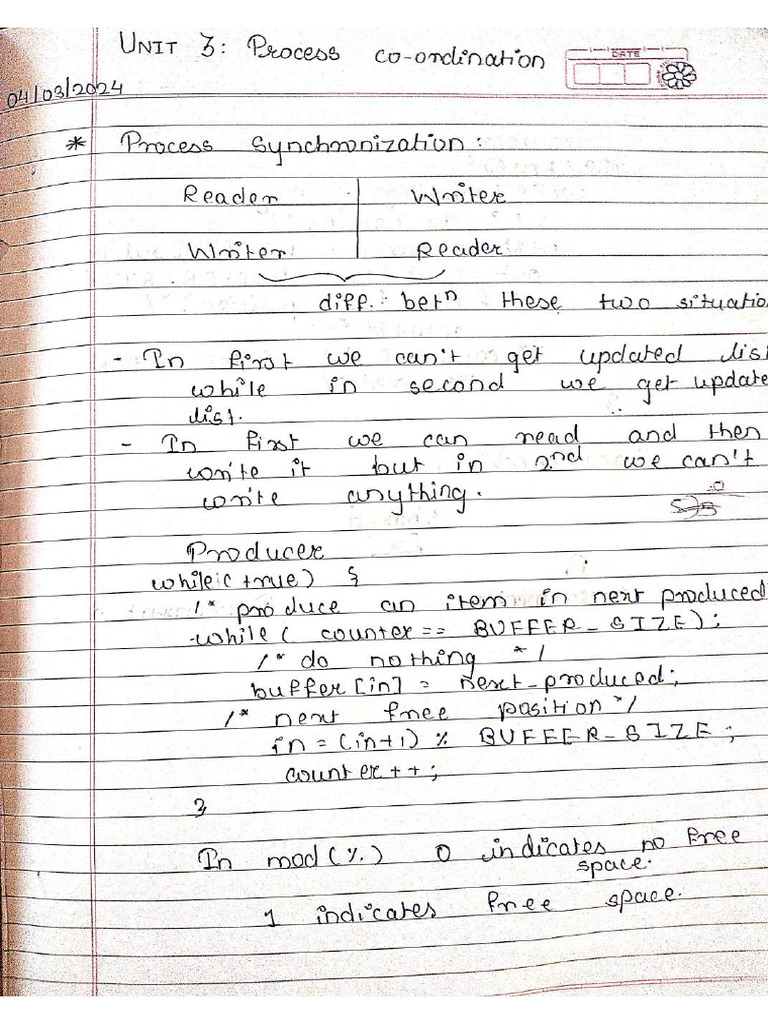 UNIT 3: Process co-ordination
DATE
04/03/2024
* Process Synchronization:
Reader | Writer
Writer | Reader
diff. betⁿ these two situatio
- In first we can't get updated lis
while in second we get update
list.
- In first we can read and then
write it but in 2nd we can't
write anything.
Producer
while(true) {
/* produce an item in next produced
while( counter == BUFFER_SIZE);
/* do nothing */
buffer[in] = next_produced;
/* next free position */
in = (in+1) % BUFFER_SIZE;
counter++;
}
In mod(%) 0 indicates no free
space.
1 indicates free space.